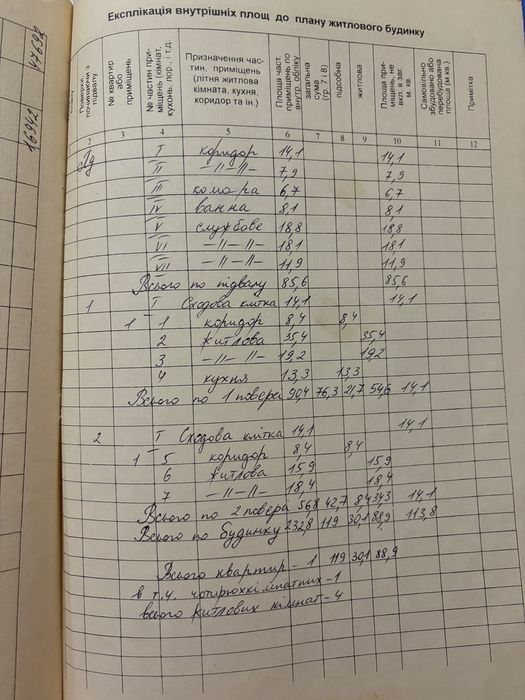 Експлікація внутрішніх площ до плану житлового будинку
Поверхи, починаючи з підвалу
№ квартир або приміщень
№ частин приміщень (кімнат, кухонь, пор., і т.д.
Призначення частин, приміщень (літня житлова кімната, кухня, коридор та ін.)
Площа част. приміщень по внутр. обліку
загальна сума (гр. 7 і 8)
підсобна
житлова
Площа приміщень, не вкл. в заг. м. кв.
Самовільно збудовано або перебудована площа (м.кв.)
Примітка
2 3 4 5 6 7 8 9 10 11 12
Пд I коридор 14,1 14,1
II –II–II– 7,9 7,9
III комора 6,7 6,7
IV ванна 8,1 8,1
V службове 18,8 18,8
VI –II–II– 18,1 18,1
VII –II–II– 11,9 11,9
Всього по підвалу 85,6 85,6
1 I Сходова клітка 14,1 14,1
1 1 коридор 8,4 8,4
2 житлова 35,4 35,4
3 –II– II– 19,2 19,2
4 кухня 13,3 13,3
Всього по 1 повера 90,4 76,3 21,7 54,6 14,1
2 I Сходова клітка 14,1 14,1
1 5 коридор 8,4 8,4
6 житлова 15,9 15,9
7 –II–II– 18,4 18,4
Всього по 2 повера 56,8 42,7 8,4 34,3 14,1
Всього по будинку 232,8 119 30,1 88,9 113,8
Всього квартир – 1 119 30,1 88,9
в т.ч. чотирьохкімнатних – 1
всього житлових кімнат – 4
16942 47692